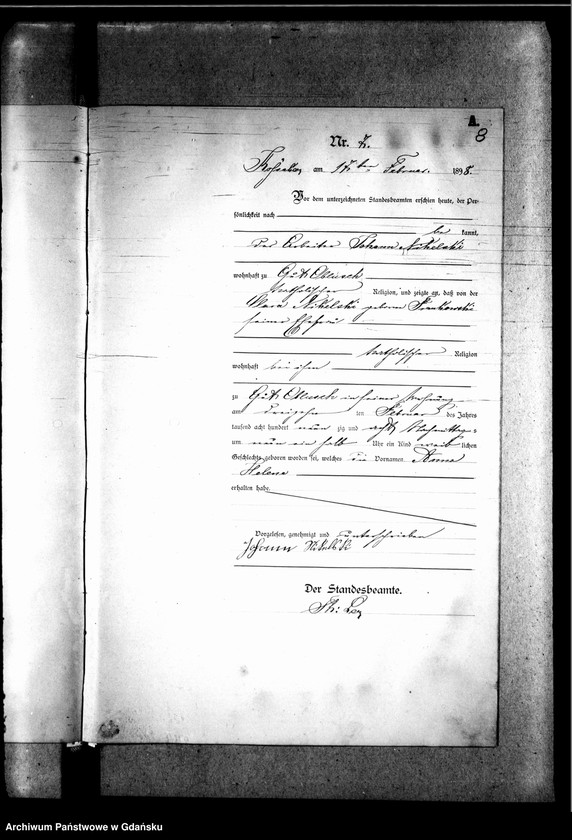 A.
8
Nr. 7.
am 17ten Februar 1898.
Vor dem unterzeichneten Standesbeamten erschien heute, der Per-
sönlichkeit nach
be kannt,
der Arbeiter Johann Nikelski
wohnhaft zu Gut Oblusch
katholischer Religion, und zeigte an, daß von der
Clara Nikelski geborene
seiner Ehefrau
katholischer Religion
wohnhaft bei ihm
zu Gut Oblusch in seiner Wohnung
am dreizehn ten Februar des Jahres
tausend acht hundert neun zig und acht Nachmittags
um neun ein halb Uhr ein Kind weib lichen
Geschlechts geboren worden sei, welches die Vornamen Anna
Helena
erhalten habe.
Vorgelesen, genehmigt und unterschrieben
Johann Nikelski
Der Standesbeamte.
Archiwum Państwowe w Gdańsku